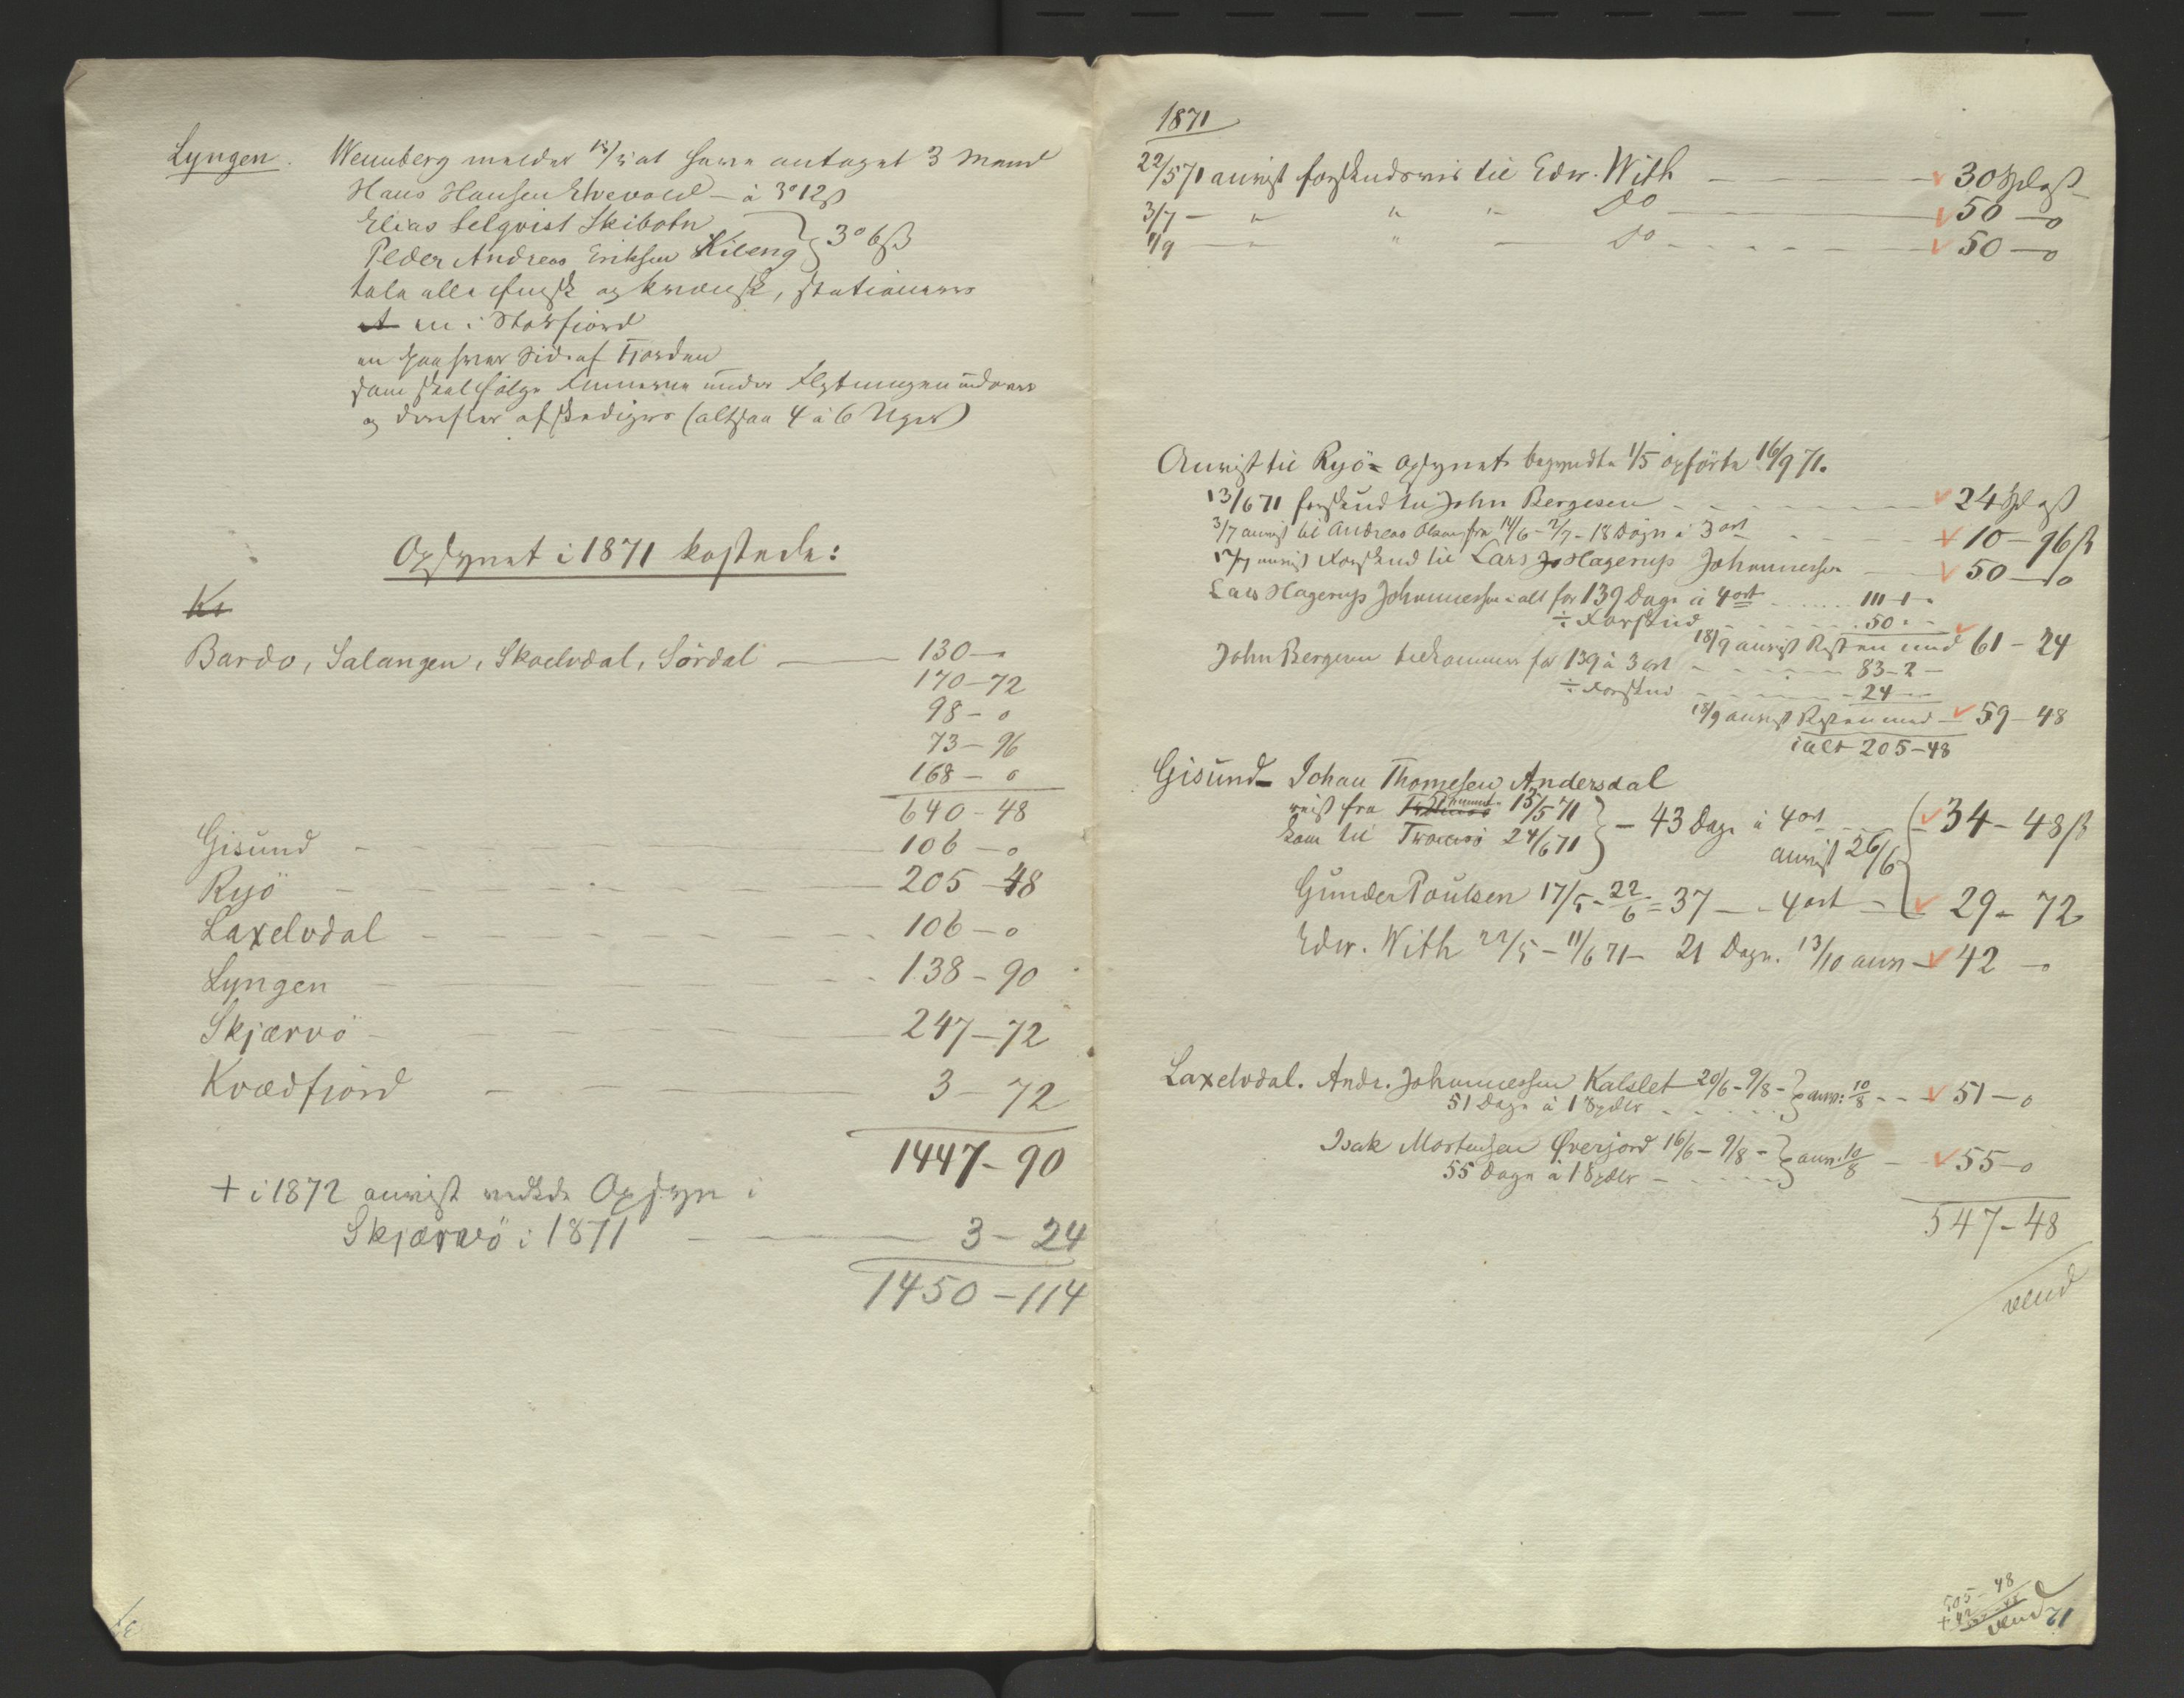 Lyngen. Wennberg melder 18/5 at have antaget 3 Mand
Hans Hansen Elvevold – à 3° 12ß
Elias Selqvist Skibotn
Peder Andreas Eriksen Kileng } 3° 6ß
tala alle finsk og kvænsk, stationeres
A en i Storfjord
en paa hver Side af Fjorden
som skal følge Finnerne under Flytningen udover
og derefter afskediges (altsaa 4 à 6 Uger)
Opsynet i 1871 kostede:
Ks
Bardo, Salangen, Skoelvdal, Sördal — 130 – o
170 – 72
98 – o
73 – 96
168 – o
640 – 48
Gisund – 106 – o
Ryö – 205 – 48
Laxelvdal – 106 – o
Lyngen – 138 – 90
Skjærvö – 247 – 72
Kvædfjord – 3 – 72
1447 – 90
+ i 1872 anvist vedkde Opsyn i
Skjærvö i 1871 — 3 – 24
1450 – 114
1871
22/5 71 anvist forskudsvis til Edv. With — 30 Spd ß
3/7 – " " " Do — 50 – o
1/9 — " — Do — 50 – o
Anvist til Ryö – Opsynet begyndte 1/5 ophörte 16/9 71.
13/6 71 forskud til John Bergesen — 24 Spd ß
3/7 anvist til Andreas Olsen fra 14/6 – 2/7 – 18 Dögn à 3 ort — 10 – 96ß
17/7 anvist Forskud til Lars Jo Hagerup Johannessen — 50 – o
Lars Hagerup Johannessen i alt for 139 Dage à 4 ort ... 111 – 1 –
÷ Forskud – 50 . –
18/9 anvist Resten med 61 – 24
John Bergesen tilkommer for 139 à 3 ort – 83 – 2 –
÷ Forskud – 24 –
18/9 anvist Resten med – 59 – 48
ialt 205 – 48
Gisund – Johan Thomesen Andersdal
reist fra Tromsö hjemmet 13/5 71
kom til Tromsö 24/6 71 } – 43 Dage à 4 ort – 34 – 48ß
anvist 26/6
Gunder Poulsen 17/5 – 22/6 = 37 – – 4 ort – 29 – 72
Edv. With 22/5 – 11/6 71 – 21 Dage. 13/10 anv – 42 – o
Laxelvdal. Andr. Johannessen Kalslet 20/6 – 9/8 – } anv: 10/8 – – 51 – o
51 Dage à 1 Spdlr
Isak Mortensen Øverjord 16/6 – 9/8 – } anv. 10/8 – 55 – o
55 Dage à 1 Spdlr –
547 – 48
vend
505 – 48
+ 42
vend
71